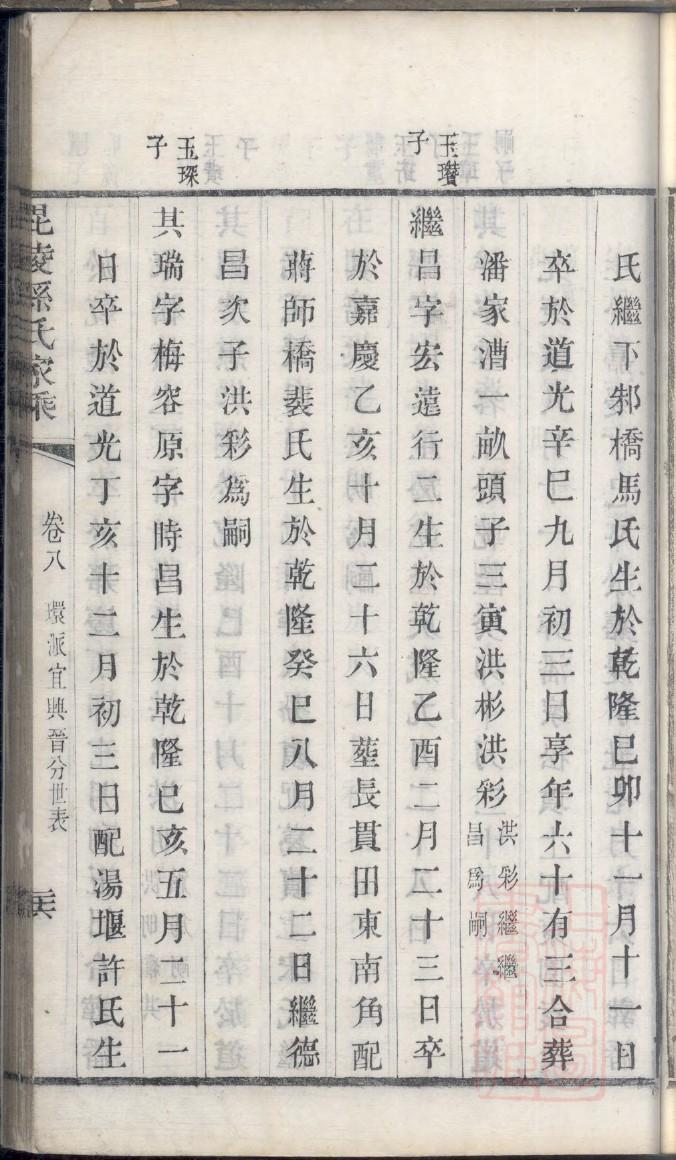 氏繼下邾橋馬氏生於乾隆己卯十一月十一日
卒於道光辛巳九月初三日享年六十有三合葬
潘家漕一畝頭子三寅洪彬洪彩洪彩繼繼昌為嗣
玉瓚子
繼昌字宏遠行二生於乾隆乙酉二月二十三日卒
於嘉慶乙亥十月二十六日塟長貫田東南角配
蔣師橋裴氏生於乾隆癸巳八月二十二日繼德
昌次子洪彩為嗣
玉琛子
其瑞字梅容原字時昌生於乾隆己亥五月二十一
日卒於道光丁亥十二月初三日配湯堰許氏生
毘陵孫氏家乘
卷八 環派宜興晉分世表